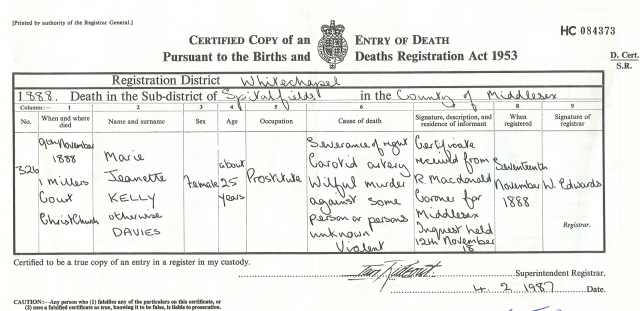 [Printed by authority of the Registrar General.]
HC 084373
CERTIFIED COPY of an ENTRY OF DEATH
Pursuant to the Births and Deaths Registration Act 1953
D. Cert.
S.R.
Registration District Whitechapel
1888. Death in the Sub-district of Spitalfields in the County of Middlesex
Columns:— 1 2 3 4 5 6 7 8 9
No. When and where died Name and surname Sex Age Occupation Cause of death Signature, description, and residence of informant When registered Signature of registrar
326
9th November
1888
1 Millers
Court
Christchurch
Marie
Jeanette
KELLY
otherwise
DAVIES
Female
about
25
years
Prostitute
Severance of right
Carotid artery
Wilful murder
against some
person or persons
unknown
Violent
Certificate
received from
R Macdonald
Coroner for
Middlesex
Inquest held
12th November
18
Seventeenth
November
1888
W. Edwards
Registrar.
Certified to be a true copy of an entry in a register in my custody.
Superintendent Registrar.
4. 2 1987 Date.
CAUTION:—Any person who (1) falsifies any of the particulars on this certificate, or
(2) uses a falsified certificate as true, knowing it to be false, is liable to prosecution.